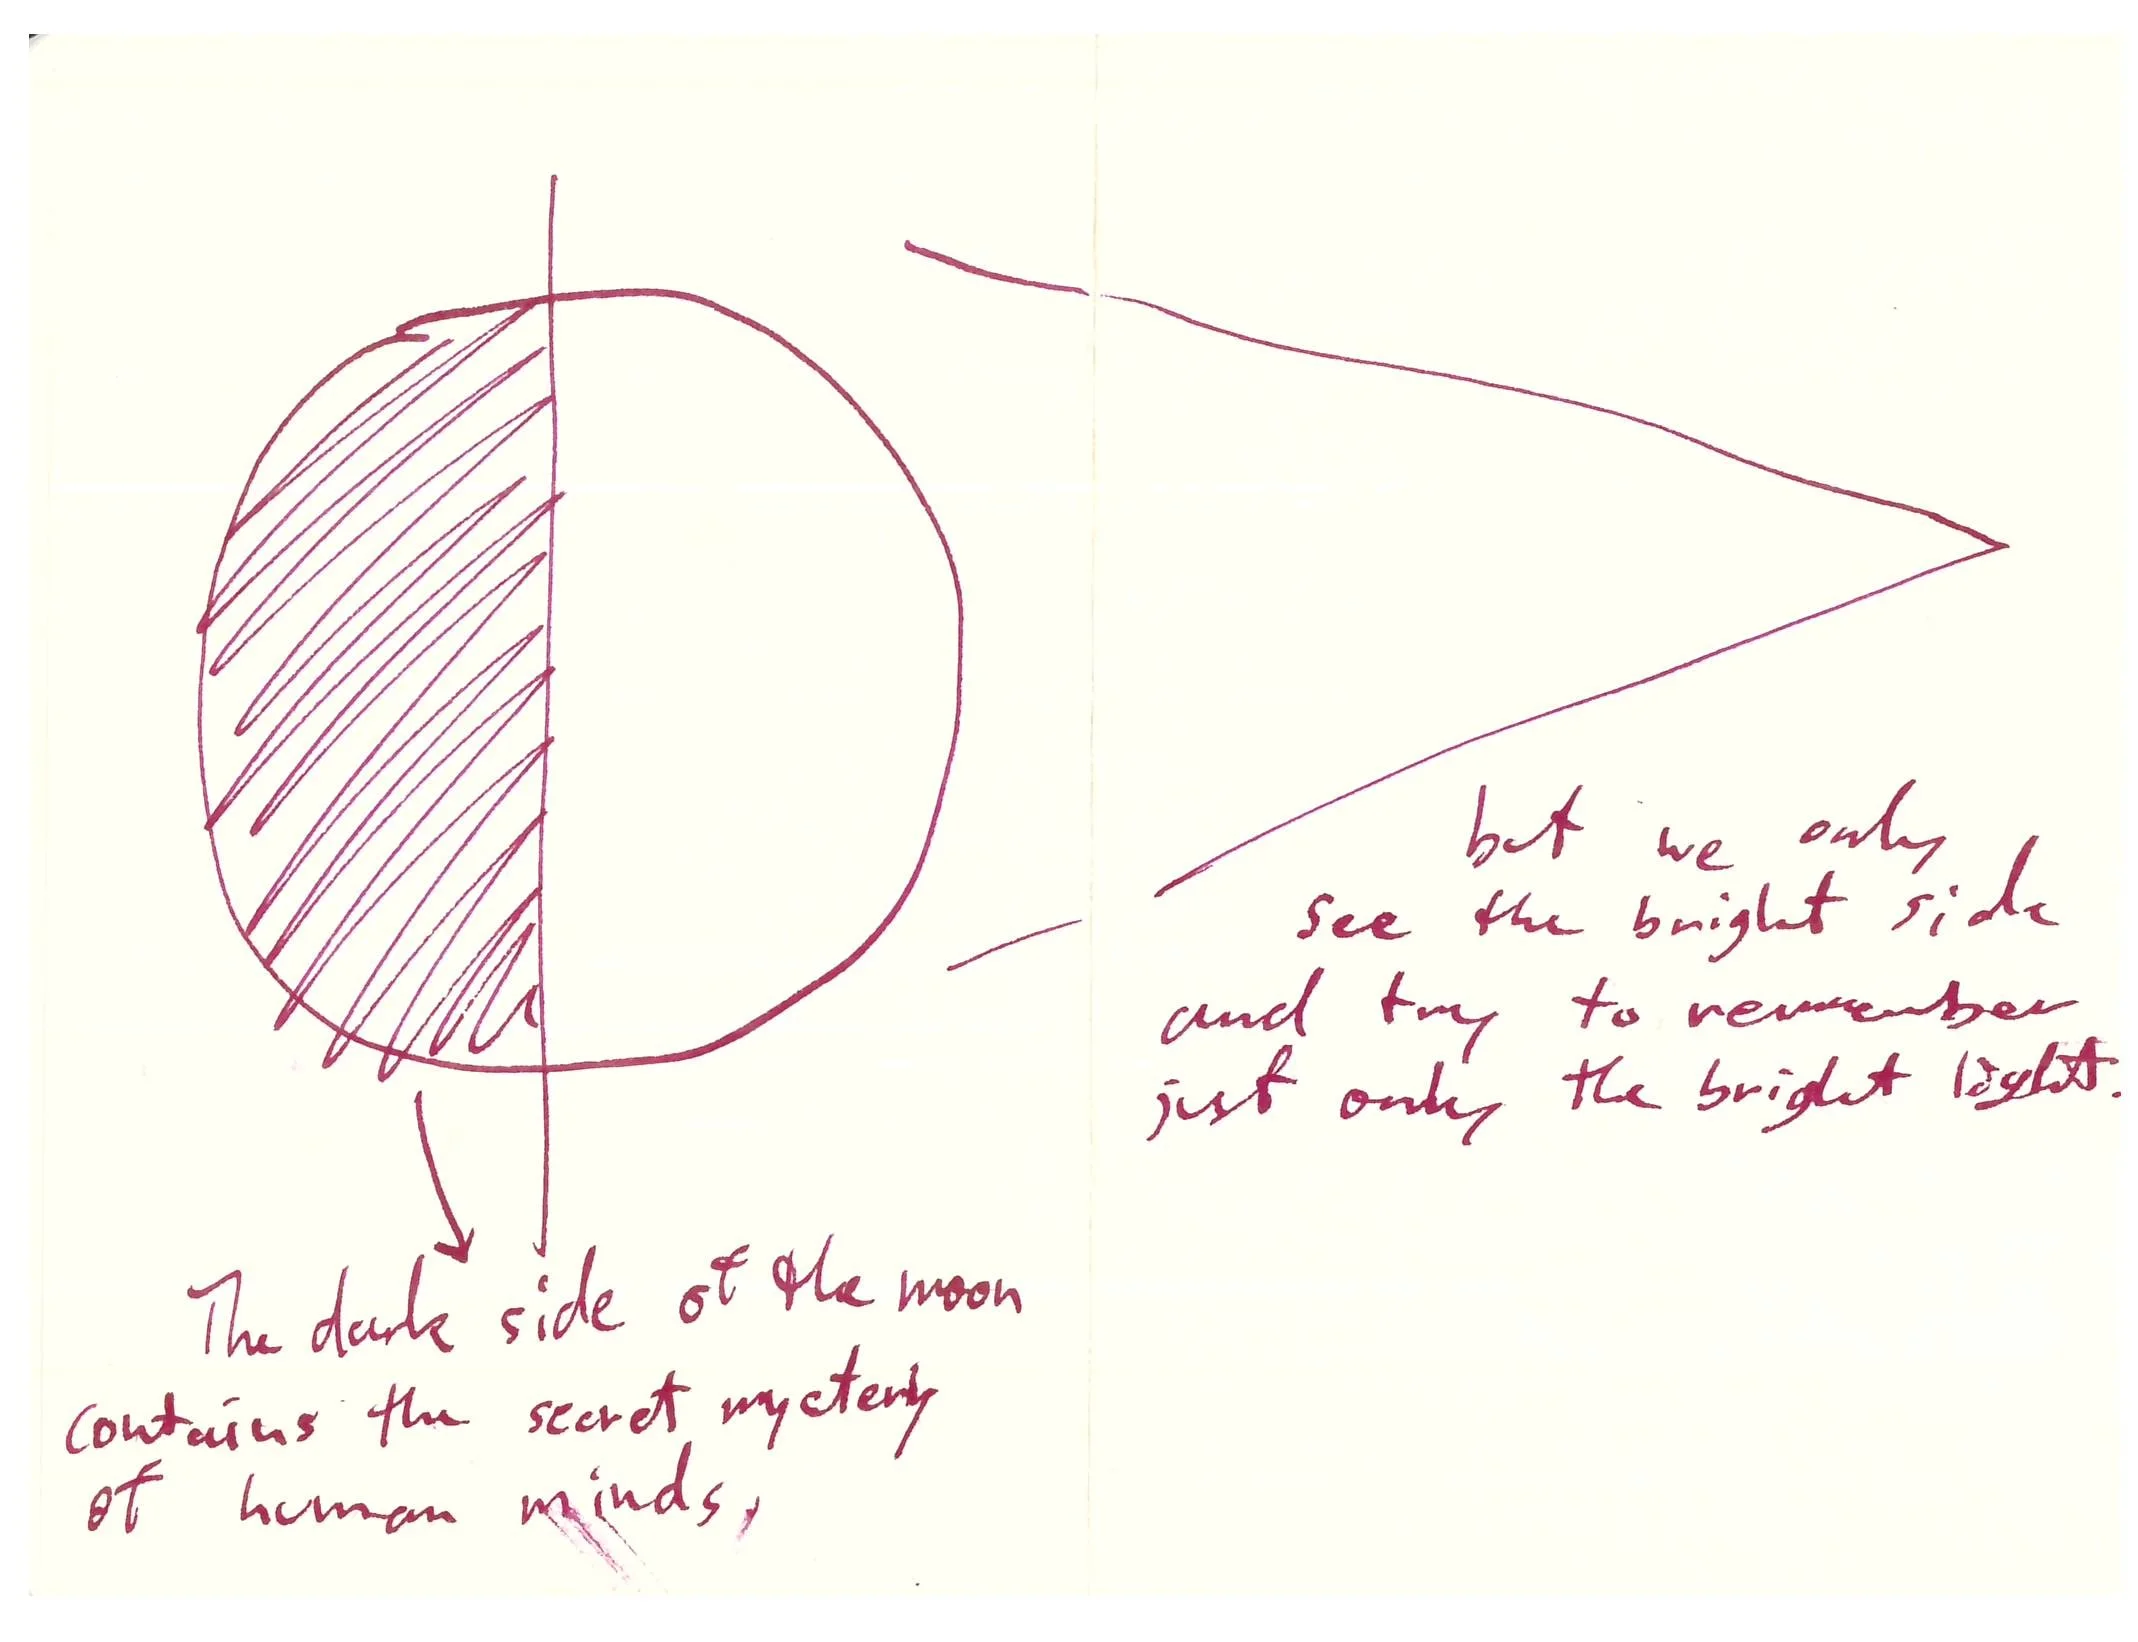 The dark side of the moon
contains the secret mystery
of human minds,
but we only
see the bright side
and try to remember
just only the bright light.